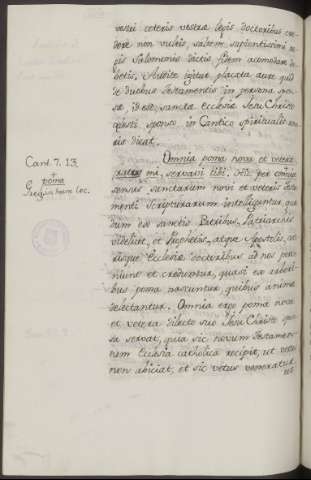 vestri ceteris vestræ legis doctoribus cre-
dere non vultis, saltem sapientissimi re-
gis Salomonis dictis fidem acomodare de-
betis, Audite igitur placata aure quid
de duobus testamentis in persona spon-
sæ, id est, sancta Ecclesia Jesu Christo
Christi, sponso in Cantico spiritualis amo-
ris dicat.
Omnia poma nova et vetera
mi, servavi tibi. per
sensus sanctarum novi et veteris testa-
menti Scripturarum intelliguntur, quæ
dum ex sanctis Patribus, Patriarchis
videlicet, et Prophetis, atque Apostolis, cæ-
risque Ecclesiæ doctoribus ad nos perve-
niunt et creduntur, quasi ex arbori-
bus poma nascuntur quibus anima
delectantur. Omnia ergo poma nova
et vetera dilecto suo Jesu Christo spon-
sa servat, quia sic novum testamen-
tum Ecclesia catholica recipit, ut vetus
non abiciat, et sic vetus veneratur
Cant. 7. 13.
poma
hunc loc.